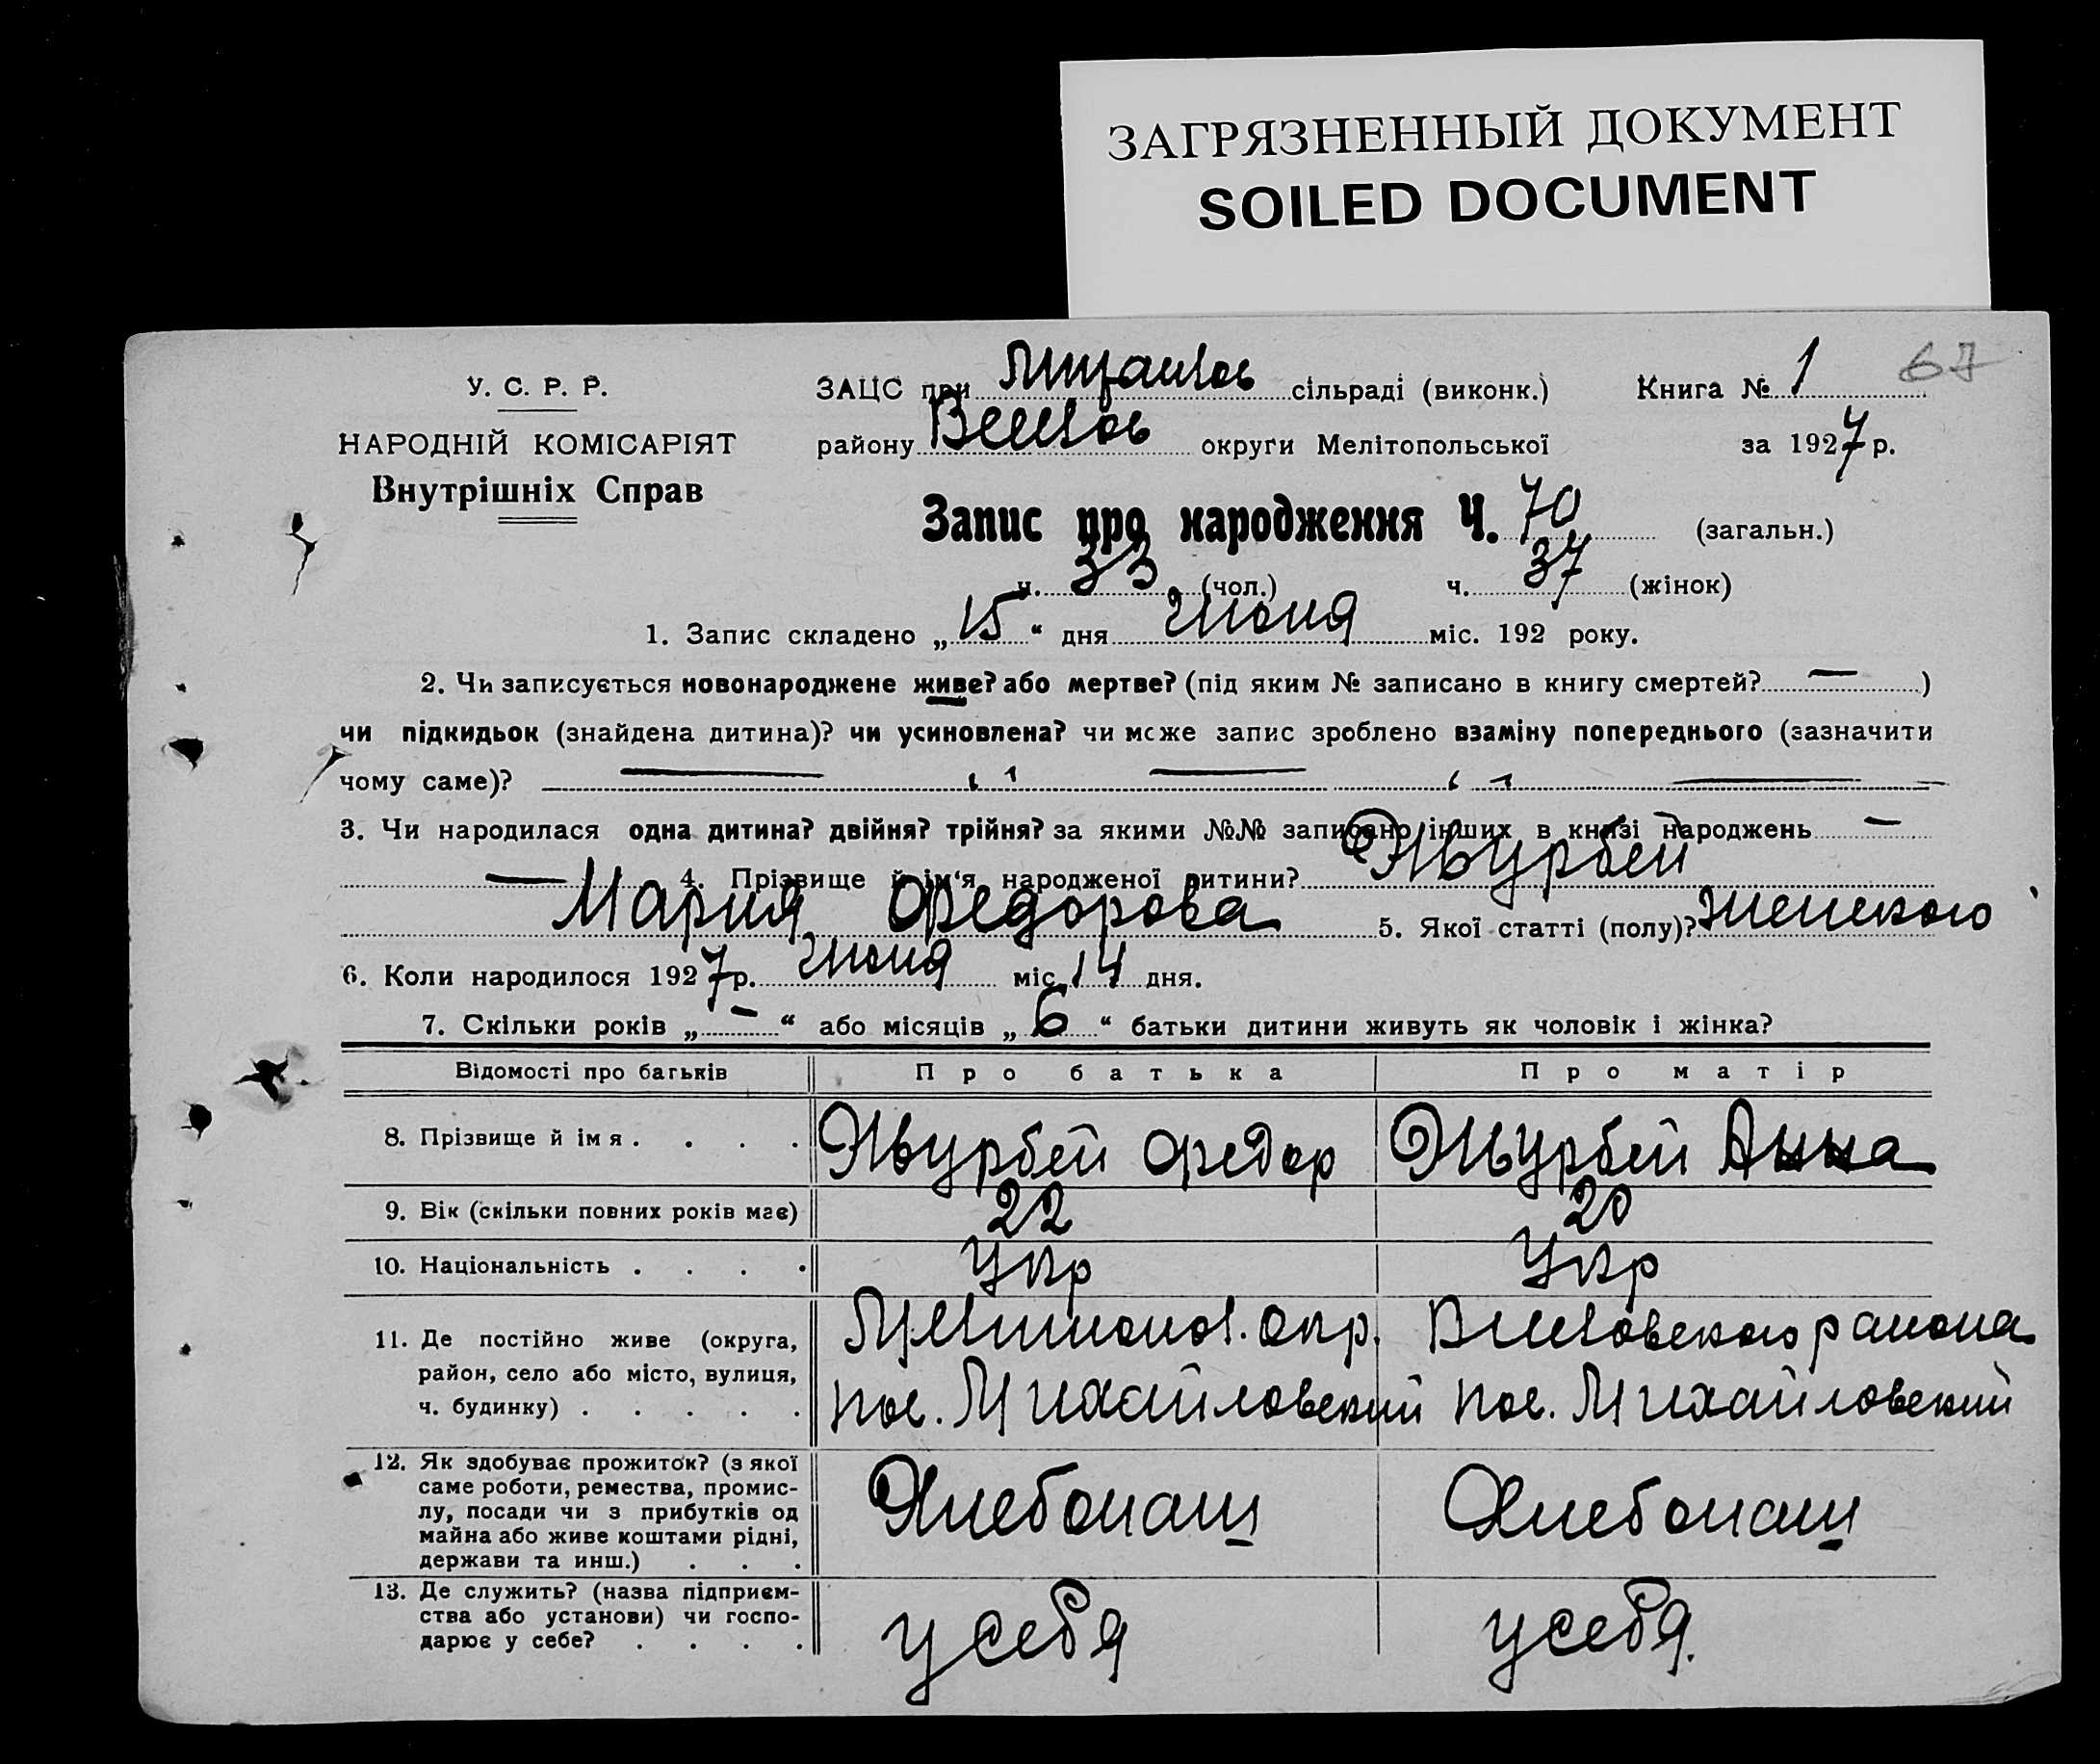 ЗАГРЯЗНЕННЫЙ ДОКУМЕНТ
SOILED DOCUMENT
67
У. С. Р. Р.
НАРОДНІЙ КОМІСАРІЯТ
Внутрішніх Справ
ЗАЦС при сільраді (виконк.) Книга № 1
району округи Мелітопольської за 1927 р.
Запис про народження Ч. 70 (загальн.)
ч. 33 (чол.) ч. 37 (жінок)
1. Запис складено „15“ дня Июня міс. 192 року.
2. Чи записується новонароджене живе? або мертве? (під яким № записано в книгу смертей? — )
чи підкидьок (знайдена дитина)? чи усиновлена? чи може запис зроблено взаміну попереднього (зазначити
чому саме)? — „ — „ —
3. Чи народилася одна дитина? двійня? трійня? за якими №№ записано інших в книзі народжень —
— 4. Прізвище й ім‘я народженої дитини? Журбей
Мария Федорова 5. Якої статті (полу)? женского
6. Коли народилося 1927 р. Июня міс. 14 дня.
7. Скільки років „ — “ або місяців „ 6 “ батьки дитини живуть як чоловік і жінка?
Відомості про батьків Про батька Про матір
8. Прізвище й імя . . . . Журбей Федор Журбей Анна
9. Вік (скільки повних років має) 22 20
10. Національність . . . . Укр Укр
11. Де постійно живе (округа, район, село або місто, вулиця, ч. будинку) . . . . .
Мелитопол. окр. района
пос. Михайловский пос. Михайловский
12. Як здобуває прожиток? (з якої саме роботи, ремества, промислу, посади чи з прибутків од майна або живе коштами рідні, держави та инш.) . . .
Хлебопаш Хлебопаш
13. Де служить? (назва підприємства або установи) чи господарює у себе? . . . .
у себя у себя.